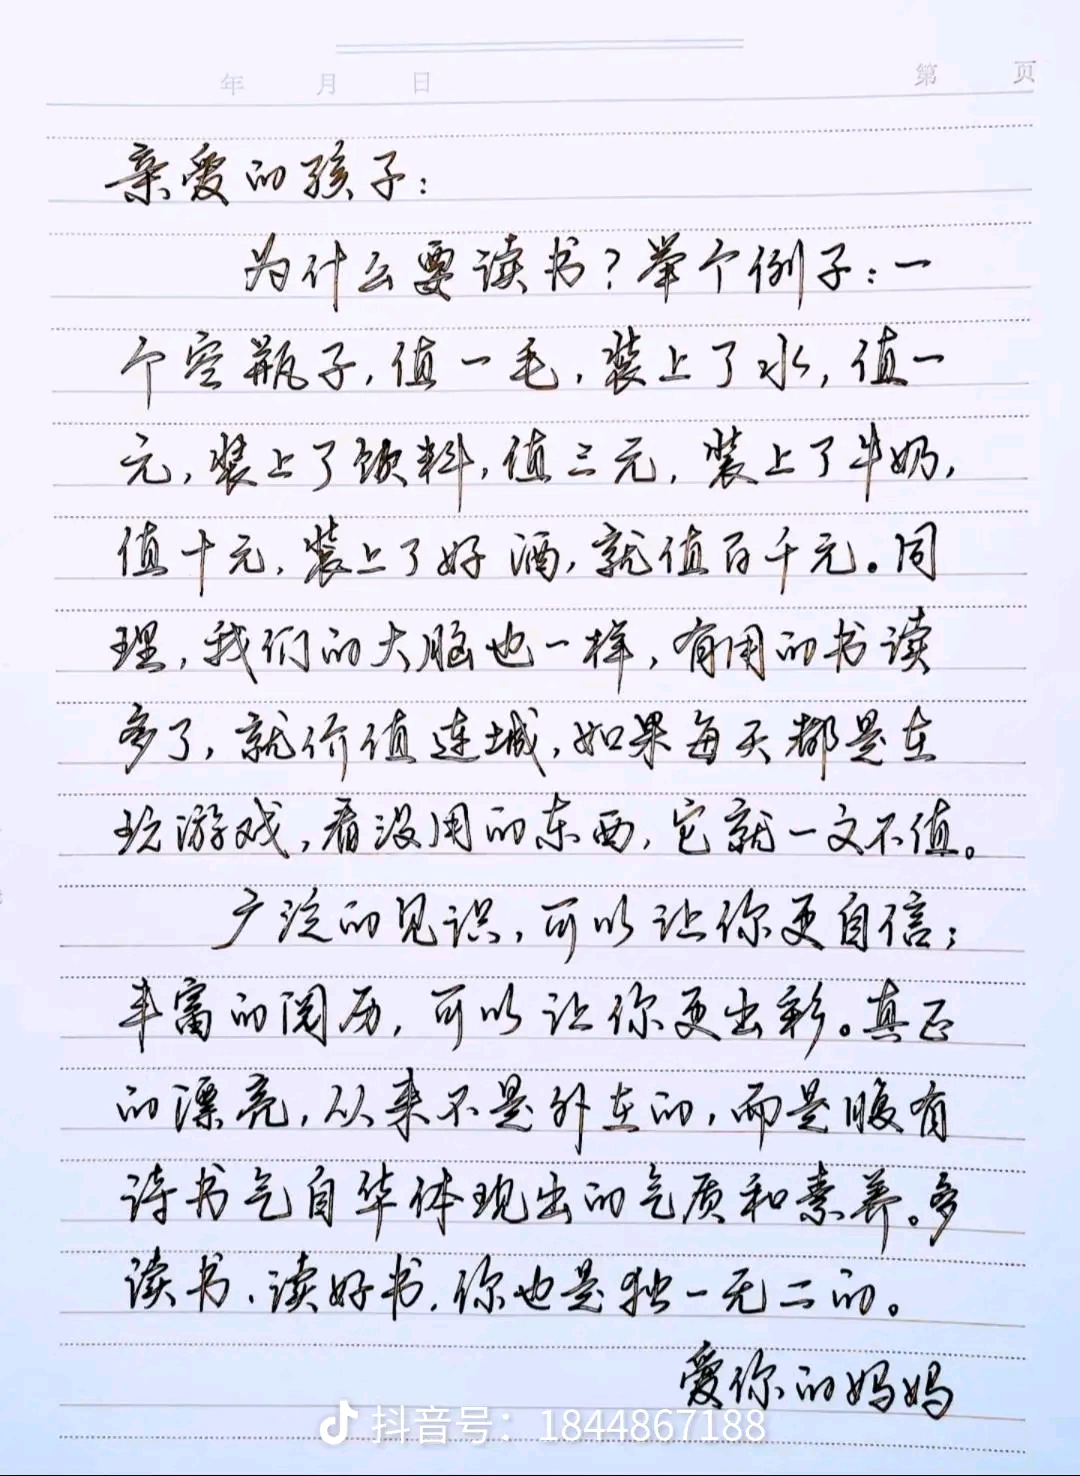 年 月 日 第 页
亲爱的孩子：
为什么要读书？举个例子：一
个空瓶子，值一毛，装上了水，值一
元，装上了饮料，值三元，装上了牛奶，
值十元，装上了好酒，就值百千元。同
理，我们的大脑也一样，有用的书读
多了，就价值连城，如果每天都是在
玩游戏，看没用的东西，它就一文不值。
广泛的见识，可以让你更自信；
丰富的阅历，可以让你更出彩。真正
的漂亮，从来不是外在的，而是腹有
诗书气自华体现出的气质和素养。多
读书、读好书，你也是独一无二的。
爱你的妈妈
抖音号：1844867188